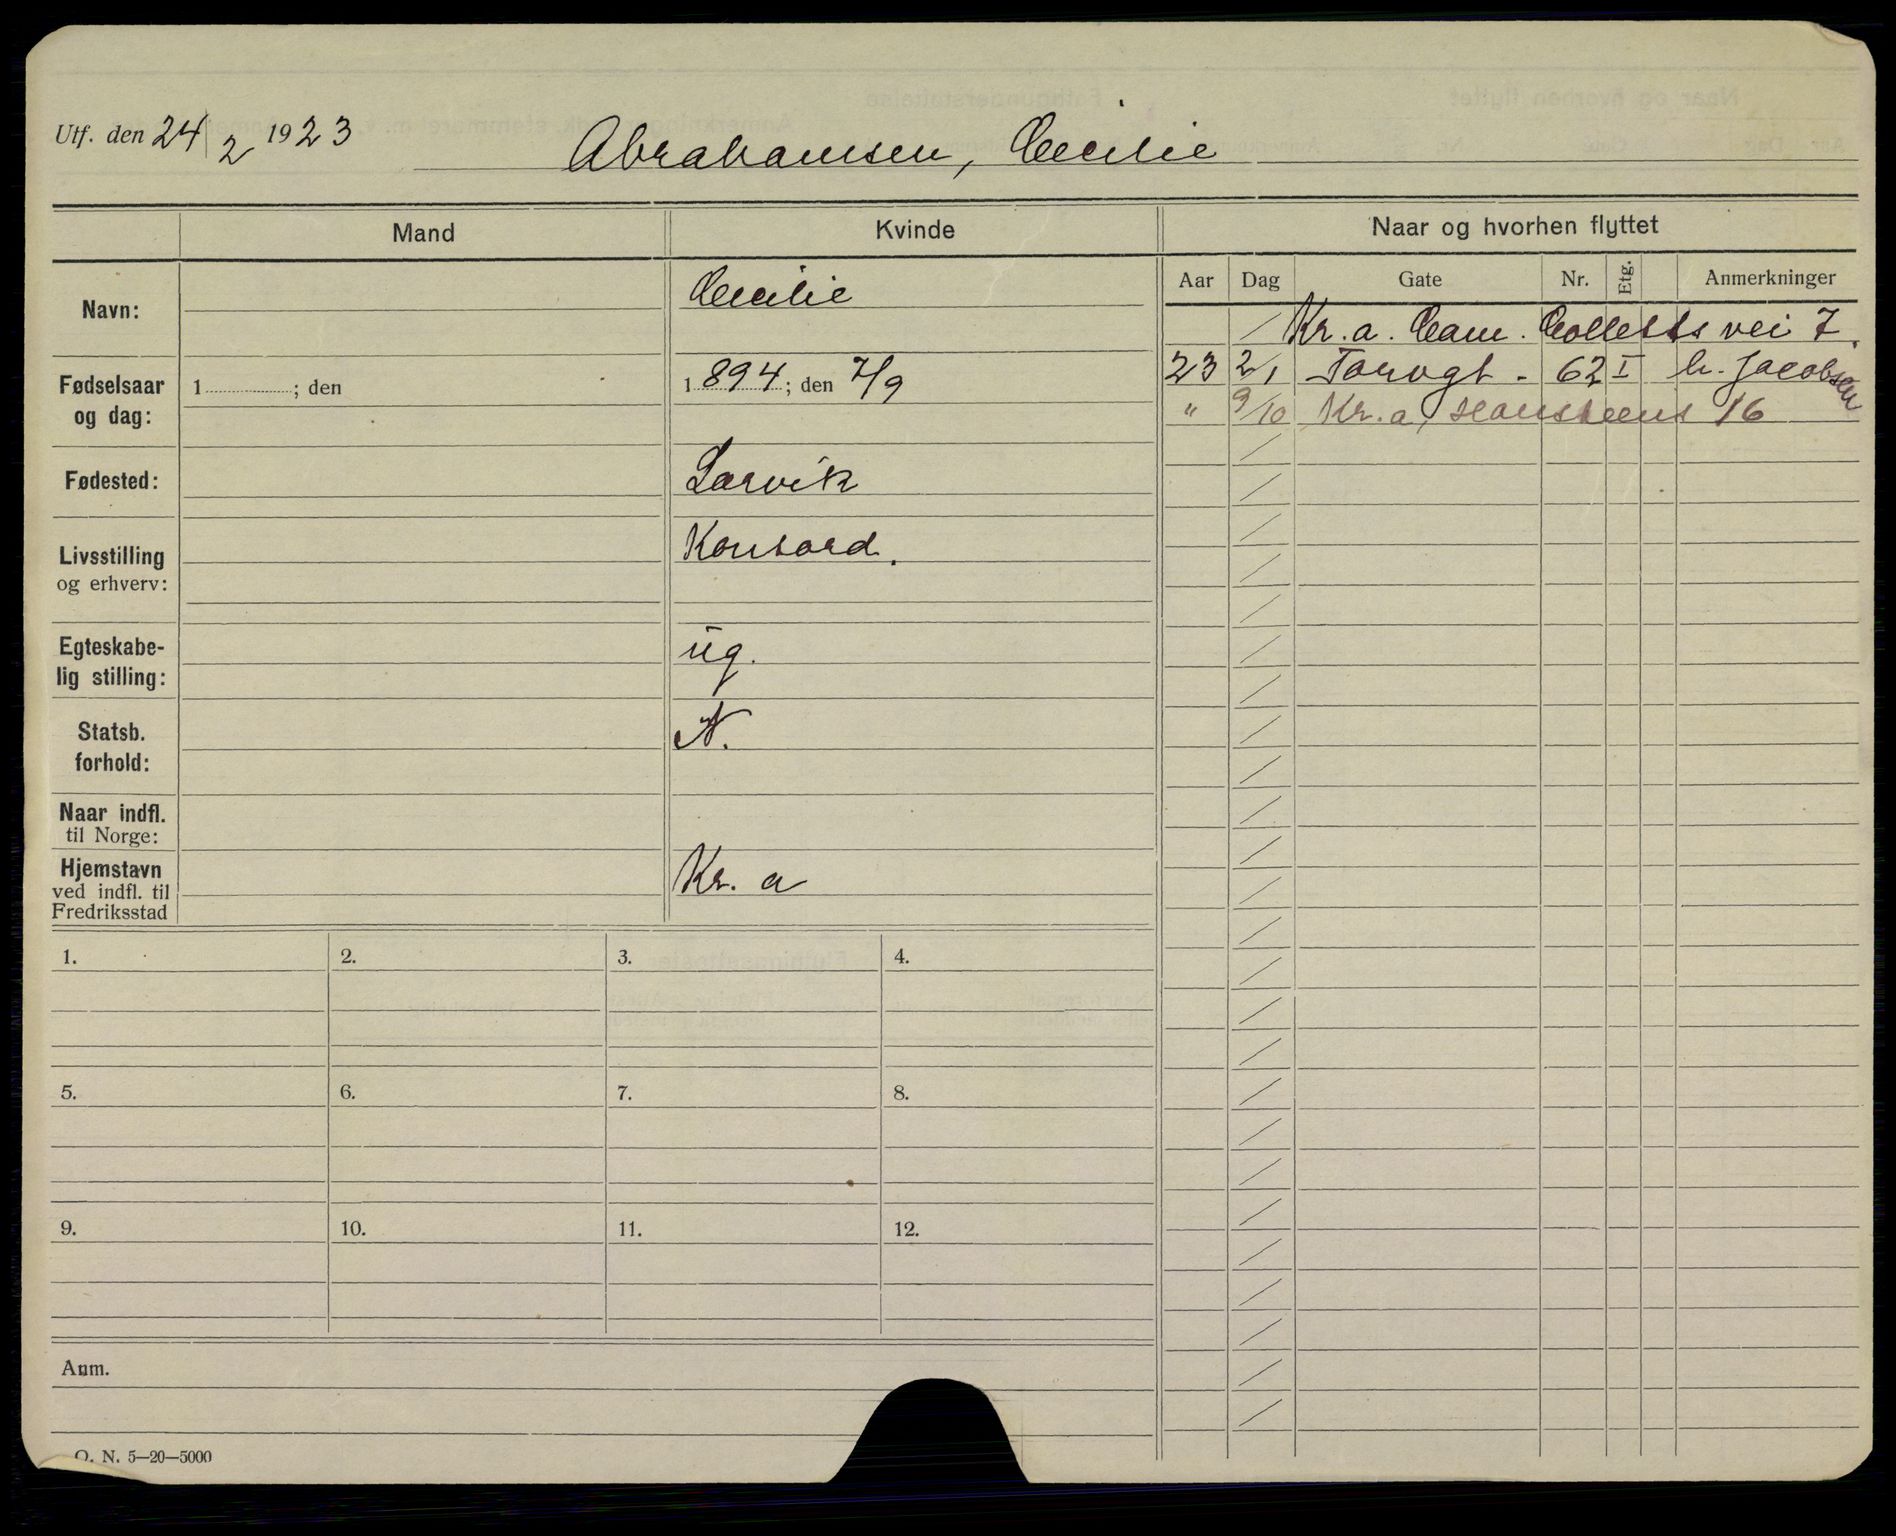 Utf. den 24/2 1923
Abrahamsen, Cecilie
Mand
Kvinde
Naar og hvorhen flyttet
Aar Dag Gate Nr. Etg. Anmerkninger
Kr.a. Cam. Colletts vei 7.
23 2/1 Torvgt. 62 I h. Jacobsen
" 9/10 Kr.a, Hansteens 16
Navn:
Cecilie
Fødselsaar
og dag:
1 ; den
1 894 ; den 7/9
Fødested:
Larvik
Livsstilling
og erhverv:
Kontord.
Egteskabe-
lig stilling:
ug.
Statsb.
forhold:
N.
Naar indfl.
til Norge:
Hjemstavn
ved indfl. til
Fredriksstad
Kr. a
1. 2. 3. 4.
5. 6. 7. 8.
9. 10. 11. 12.
Anm.
O. N. 5—20—5000